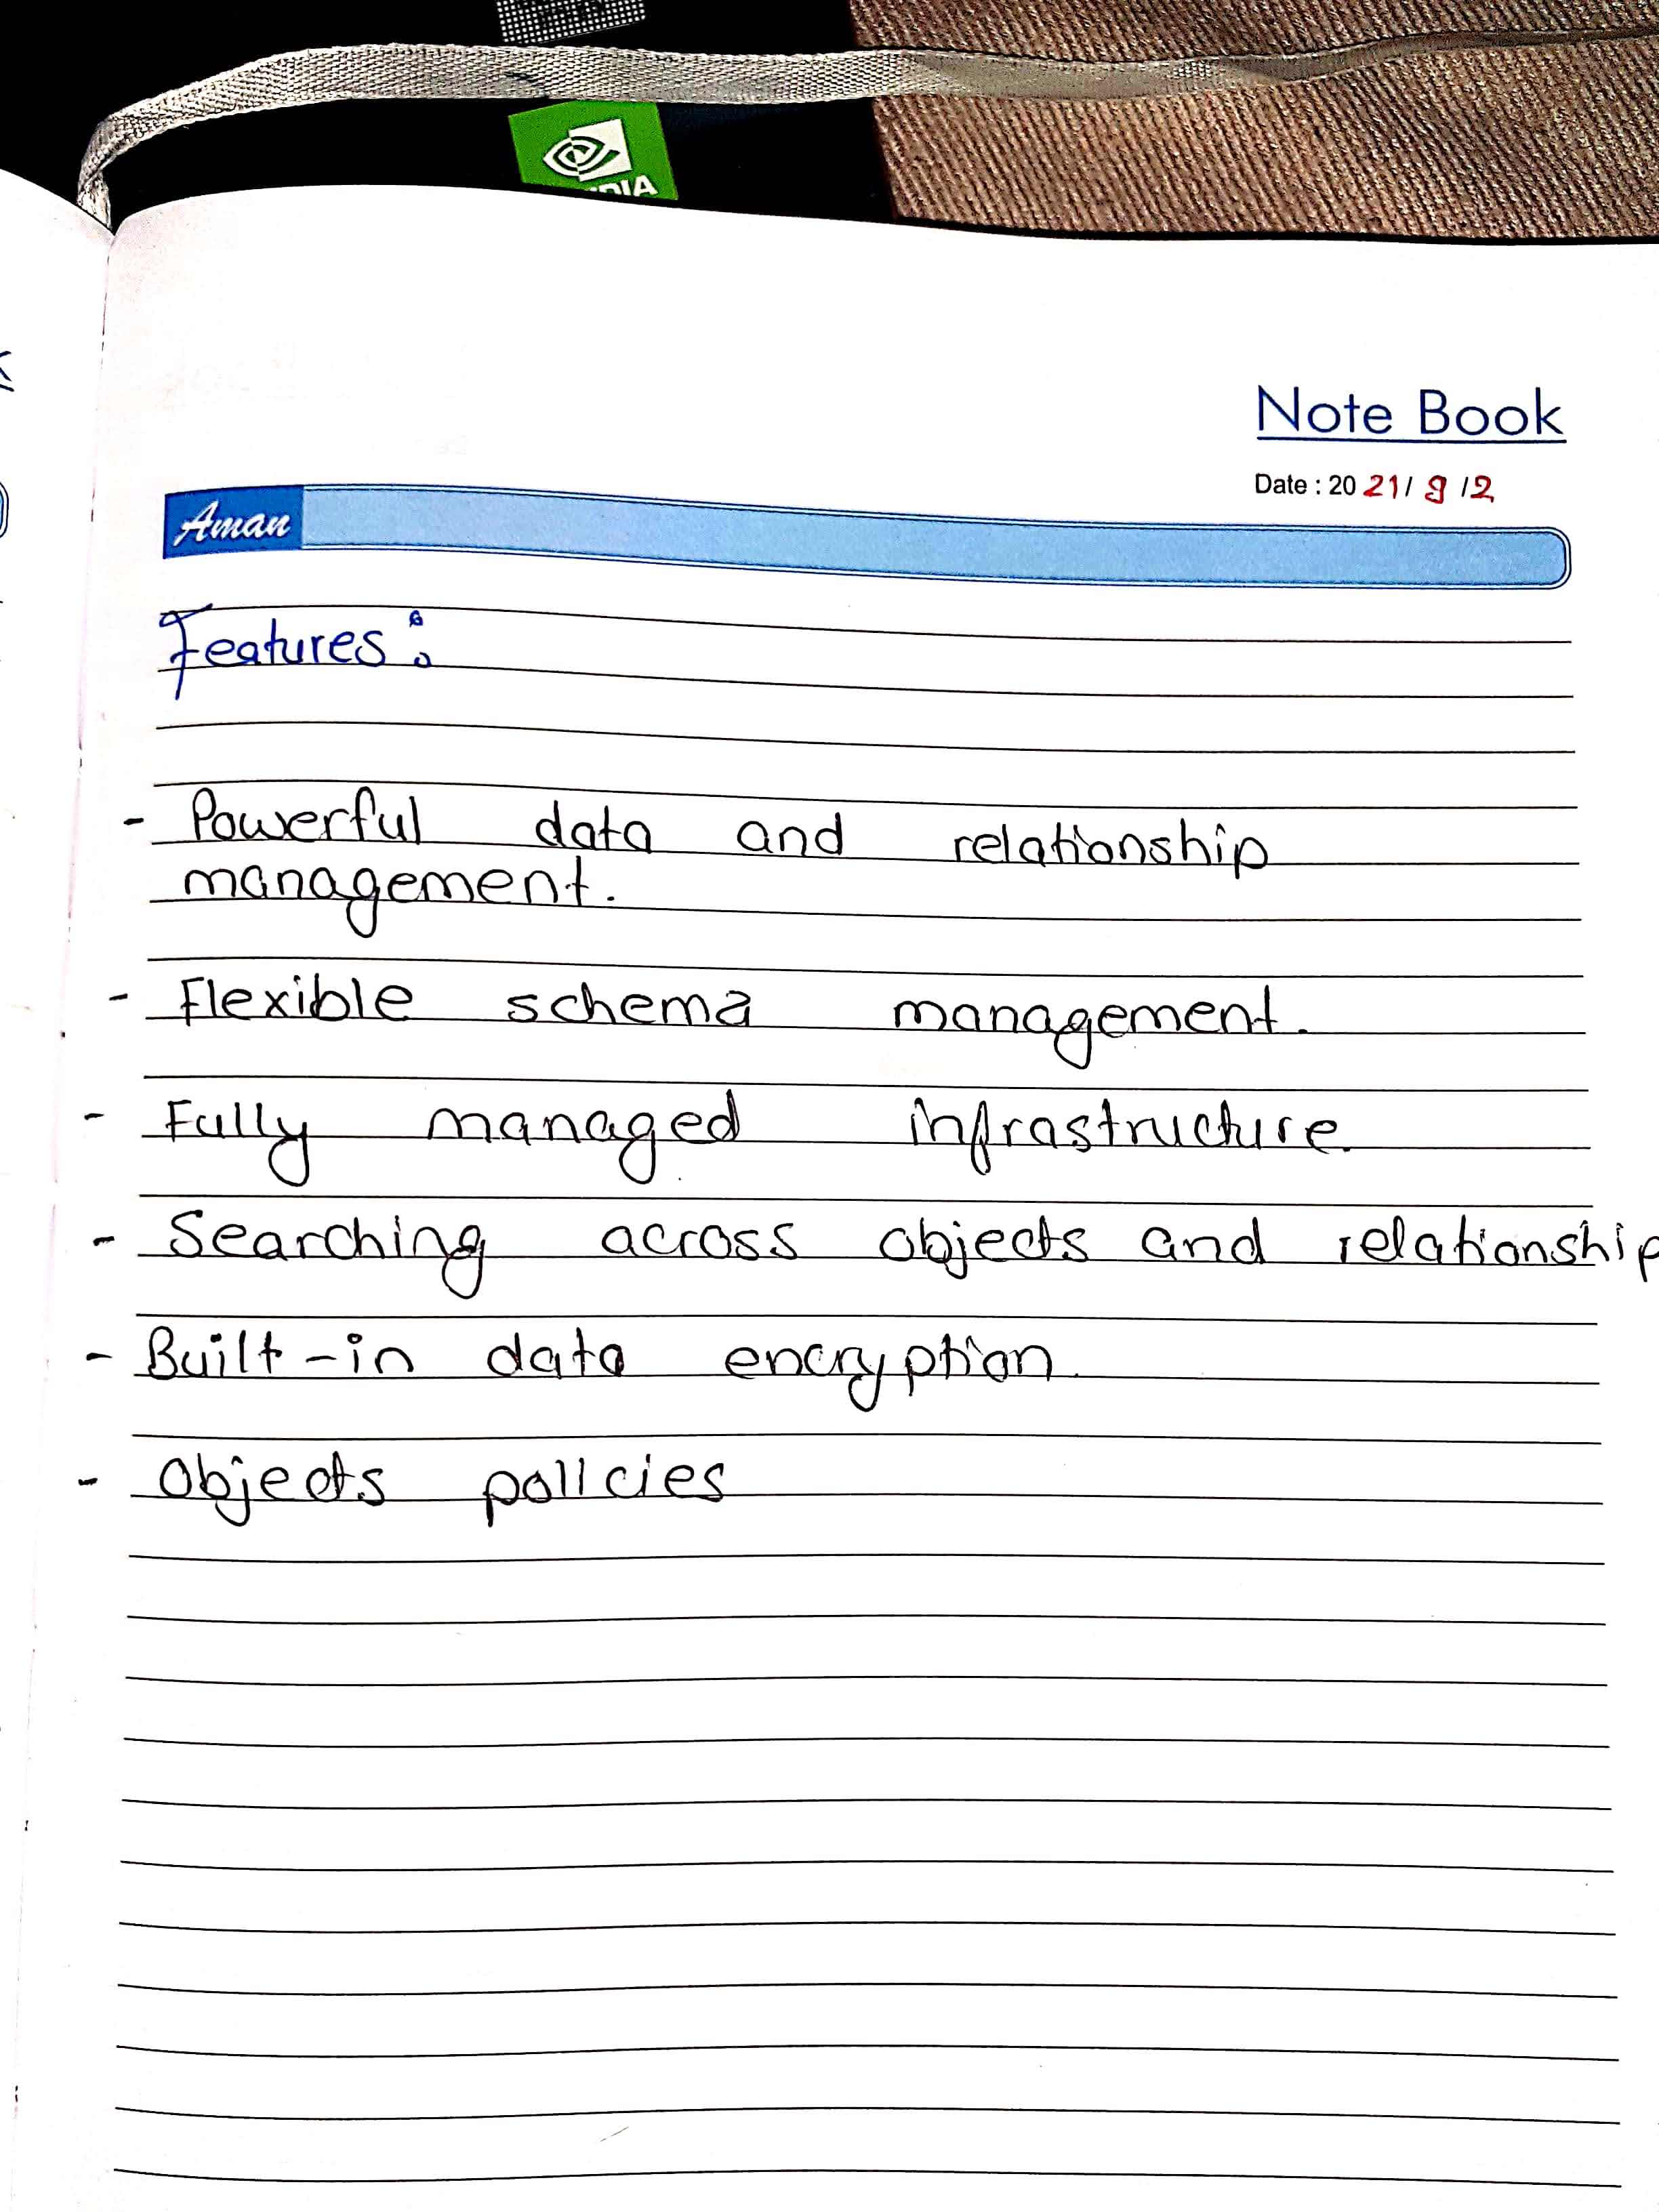 Note Book
Date : 20 21/ 9 /2
Aman
Features:
- Powerful data and relationship
management.
- Flexible schema management.
- Fully managed infrastructure.
- Searching across objects and relationship
- Built-in data encryption.
- Objects policies